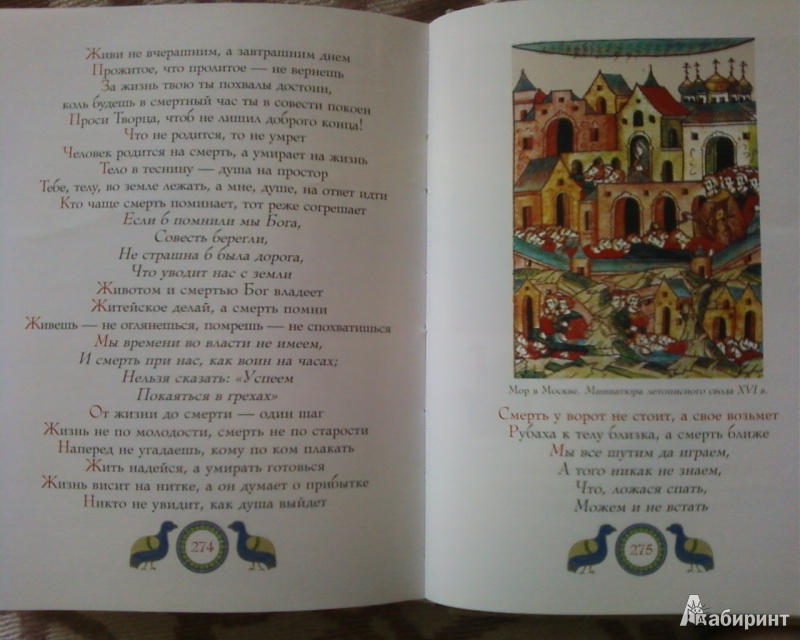 Живи не вчерашним, а завтрашним днем
Прожитое, что пролитое — не вернешь
За жизнь твою ты похвалы достоин,
коль будешь в смертный час ты в совести покоен
Проси Творца, чтоб не лишил доброго конца!
Что не родится, то не умрет
Человек родится на смерть, а умирает на жизнь
Тело в теснину — душа на простор
Тебе, телу, во земле лежать, а мне, душе, на ответ идти
Кто чаще смерть поминает, тот реже согрешает
Если б помнили мы Бога,
Совесть берегли,
Не страшна б была дорога,
Что уводит нас с земли
Животом и смертью Бог владеет
Житейское делай, а смерть помни
Живешь — не оглянешься, помрешь — не спохватишься
Мы времени во власти не имеем,
И смерть при нас, как воин на часах;
Нельзя сказать: «Успеем
Покаяться в грехах»
От жизни до смерти — один шаг
Жизнь не по молодости, смерть не по старости
Наперед не угадаешь, кому по ком плакать
Жить надейся, а умирать готовься
Жизнь висит на нитке, а он думает о прибытке
Никто не увидит, как душа выйдет
274
Мор в Москве. Миниатюра летописного свода XVI в.
Смерть у ворот не стоит, а свое возьмет
Рубаха к телу близка, а смерть ближе
Мы все шутим да играем,
А того никак не знаем,
Что, ложася спать,
Можем и не встать
275
Лабиринт